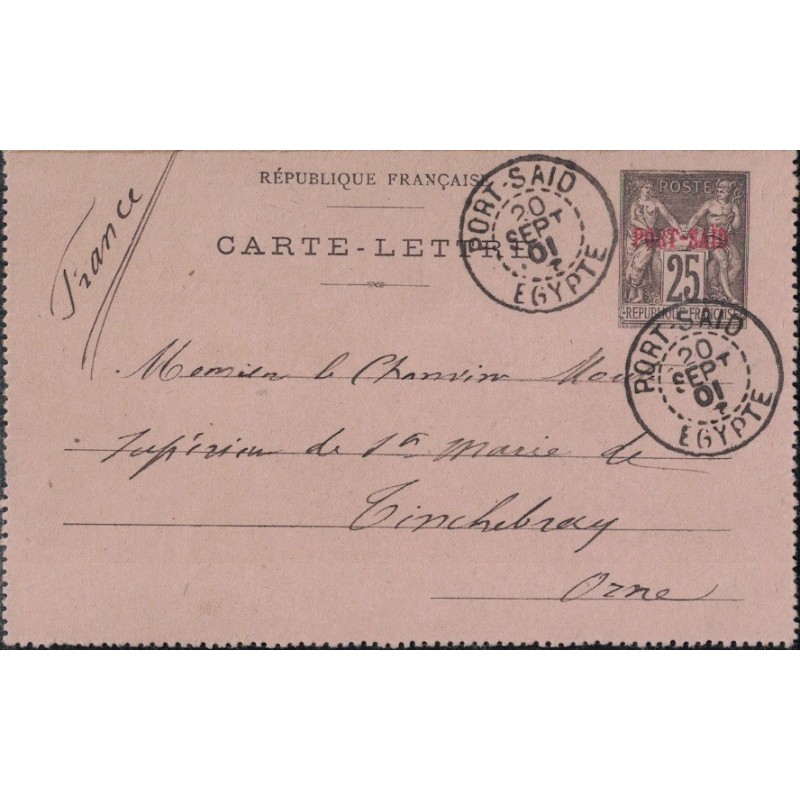 France
RÉPUBLIQUE FRANÇAISE
CARTE-LETTRE
PORT-SAID
20
SEPT
01
EGYPTE
POSTE
PORT-SAÏD
25
REPUBLIQUE FRANÇAISE
PORT-SAID
20
SEPT
01
EGYPTE
Monsieur le Chanoine
Supérieur de Ste Marie de
Tinchebray
Orne